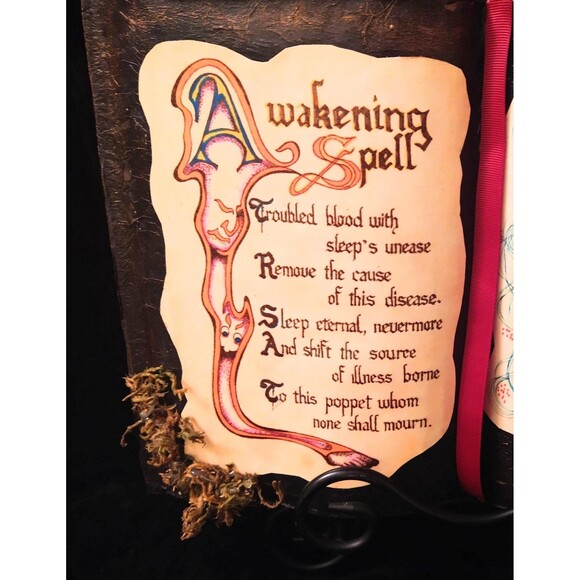 Awakening
Spell
Troubled blood with
sleep's unease
Remove the cause
of this disease.
Sleep eternal, nevermore
And shift the source
of illness borne
To this poppet whom
none shall mourn.